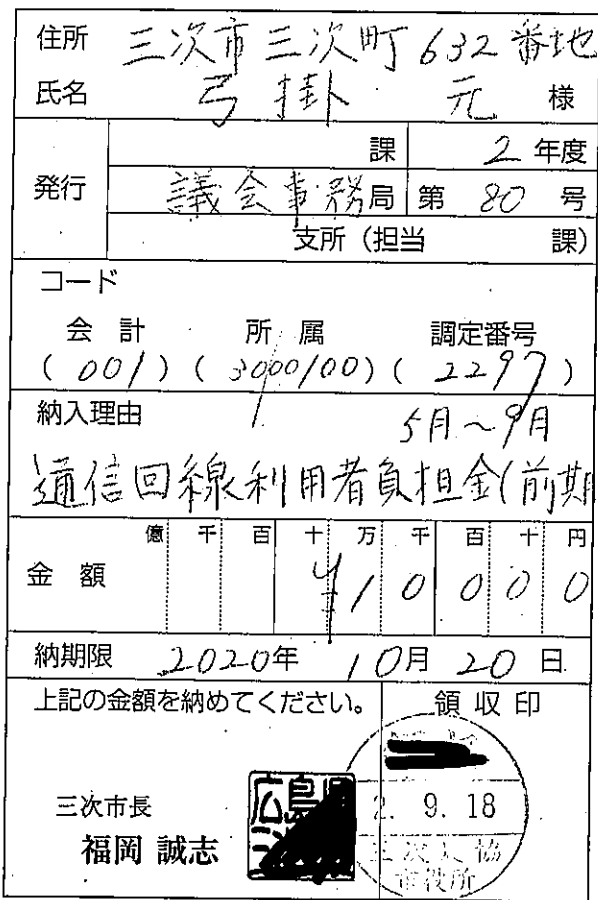 住所 三次市三次町632番地
氏名 弓掛 元 様
発行
課 2年度
議会事務局 第 80 号
支所(担当 課)
コード
会計 所属 調定番号
(001) (3000100) (2297)
納入理由 5月~9月
通信回線利用者負担金(前期
億 千 百 十 万 千 百 十 円
金額 ¥10000
納期限 2020年 10月 20日
上記の金額を納めてください。
領収印
三次市長
福岡 誠志
広島県
2. 9. 18
市役所